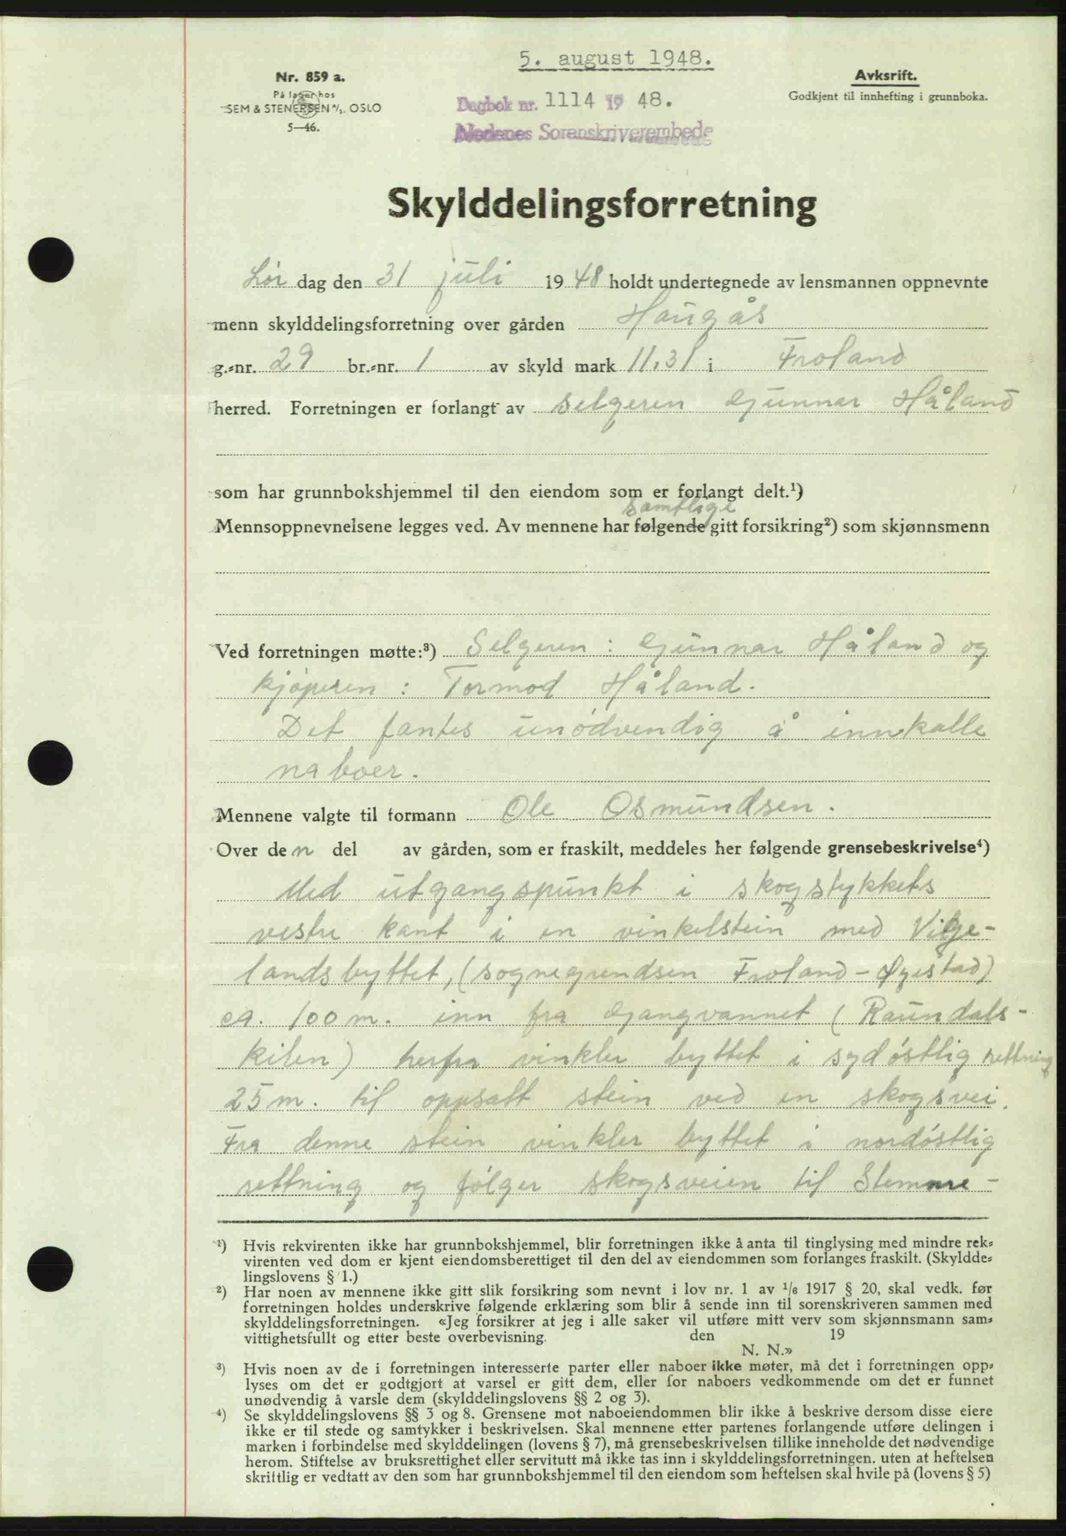 5. august 1948.
Nr. 859 a.
På lager hos
SEM & STENERSEN A/S. OSLO
5—46.
Avskrift.
Godkjent til innhefting i grunnboka.
Dagbok nr. 1114 19 48.
Nedenes Sorenskriverembede
Skylddelingsforretning
Lør dag den 31 juli 1948 holdt undertegnede av lensmannen oppnevnte
menn skylddelingsforretning over gården Haugås
g.-nr. 29 br.-nr. 1 av skyld mark 11,31 i Froland
herred. Forretningen er forlangt av selgeren Gunnar Håland
som har grunnbokshjemmel til den eiendom som er forlangt delt.¹)
samtlige
Mennsoppnevnelsene legges ved. Av mennene har følgende gitt forsikring²) som skjønnsmenn
Ved forretningen møtte:³) Selgeren: Gunnar Håland og
kjøperen: Tormod Håland.
Det fantes unødvendig å innkalle
naboer.
Mennene valgte til formann Ole Osmundsen.
Over den del av gården, som er fraskilt, meddeles her følgende grensebeskrivelse⁴)
Med utgangspunkt i skogstykkets
vestre kant i en vinkelstein med Vilge-
landsbyttet, (sognegrendsen Froland-Øyestad)
ca. 100 m. inn fra Gangvannet (Raundals-
kilen) herfra vinkler byttet i sydøstlig rettning
25 m. til oppsatt stein ved en skogsvei.
Fra denne stein vinkler byttet i nordøstlig
rettning og følger skogsveien til Stemme-
¹) Hvis rekvirenten ikke har grunnbokshjemmel, blir forretningen ikke å anta til tinglysing med mindre rek-
virenten ved dom er kjent eiendomsberettiget til den del av eiendommen som forlanges fraskilt. (Skyldde-
lingslovens § 1.)
²) Har noen av mennene ikke gitt slik forsikring som nevnt i lov nr. 1 av 1/6 1917 § 20, skal vedk. før
forretningen holdes underskrive følgende erklæring som blir å sende inn til sorenskriveren sammen med
skylddelingsforretningen. «Jeg forsikrer at jeg i alle saker vil utføre mitt verv som skjønnsmann sam-
vittighetsfullt og etter beste overbevisning. den 19
N. N.»
³) Hvis noen av de i forretningen interesserte parter eller naboer ikke møter, må det i forretningen opp-
lyses om det er godtgjort at varsel er gitt dem, eller for naboers vedkommende om det er funnet
unødvendig å varsle dem (skylddelingslovens §§ 2 og 3).
⁴) Se skylddelingslovens §§ 3 og 8. Grensene mot naboeiendommen blir ikke å beskrive dersom disse eiere
ikke er til stede og samtykker i beskrivelsen. Skal mennene etter partenes forlangende utføre delingen i
marken i forbindelse med skylddelingen (lovens § 7), må grensebeskrivelsen tillike inneholde det nødvendige
herom. Stiftelse av bruksrettighet eller servitutt må ikke tas inn i skylddelingsforretningen. uten at heftelsen
skriftlig er vedtatt av den som har grunnbokshjemmel til den eiendom som heftelsen skal hvile på (lovens § 5)